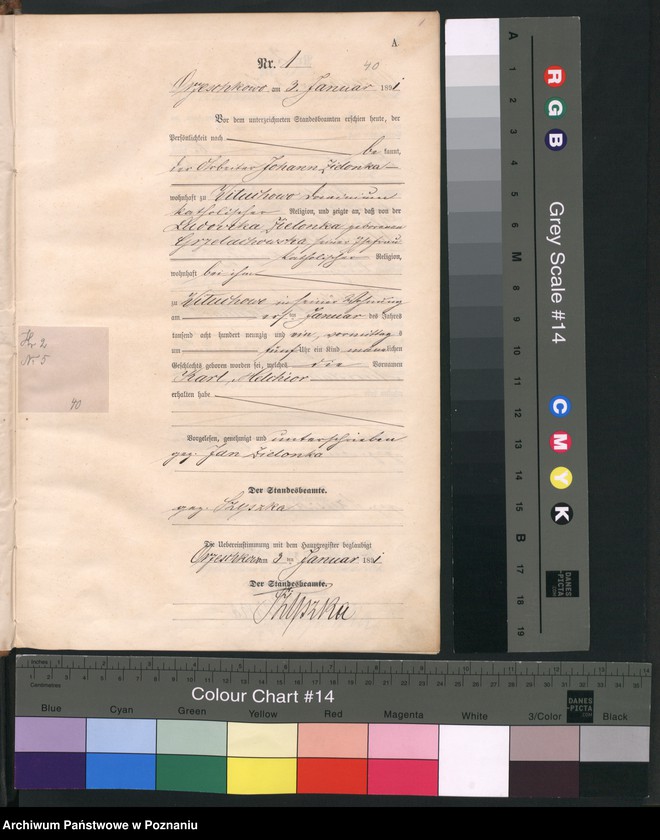 A
Nr. 1
40
Orzeschkowo am 3. Januar 1891.
Vor dem unterzeichneten Standesbeamten erschien heute, der
Persönlichkeit nach
be kannt,
der Arbeiter Johann Zielonka
wohnhaft zu Kituchowo dominium
katholischer Religion, und zeigte an, daß von der
Ludowika Zielonka geborenen
seiner Ehefrau
katholischer Religion,
wohnhaft bei ihm
zu Kituchowo in seiner Wohnung
am ersten Januar des Jahres
tausend acht hundert neunzig und ein, vormittag s
um fünf Uhr ein Kind männlichen
Geschlechts geboren worden sei, welches die Vornamen
Karl Melchior
erhalten habe.
Vorgelesen, genehmigt und unterschrieben
gez. Jan Zielonka
Der Standesbeamte.
gez. Szyszka
Die Uebereinstimmung mit dem Hauptregister beglaubigt
Orzeschkowo am 3ten Januar 1891.
Der Standesbeamte.
Szyszka
Nr 5
40
A
1
2
3
4
5
6
M
8
9
10
11
12
13
14
15
B
17
18
19
R
G
B
Grey Scale #14
C
M
Y
K
DANES
-PICTA
.COM
Inches
Centimetres
Colour Chart #14
DANES
-PICTA
.COM
Blue Cyan Green Yellow Red Magenta White 3/Color Black
Archiwum Państwowe w Poznaniu